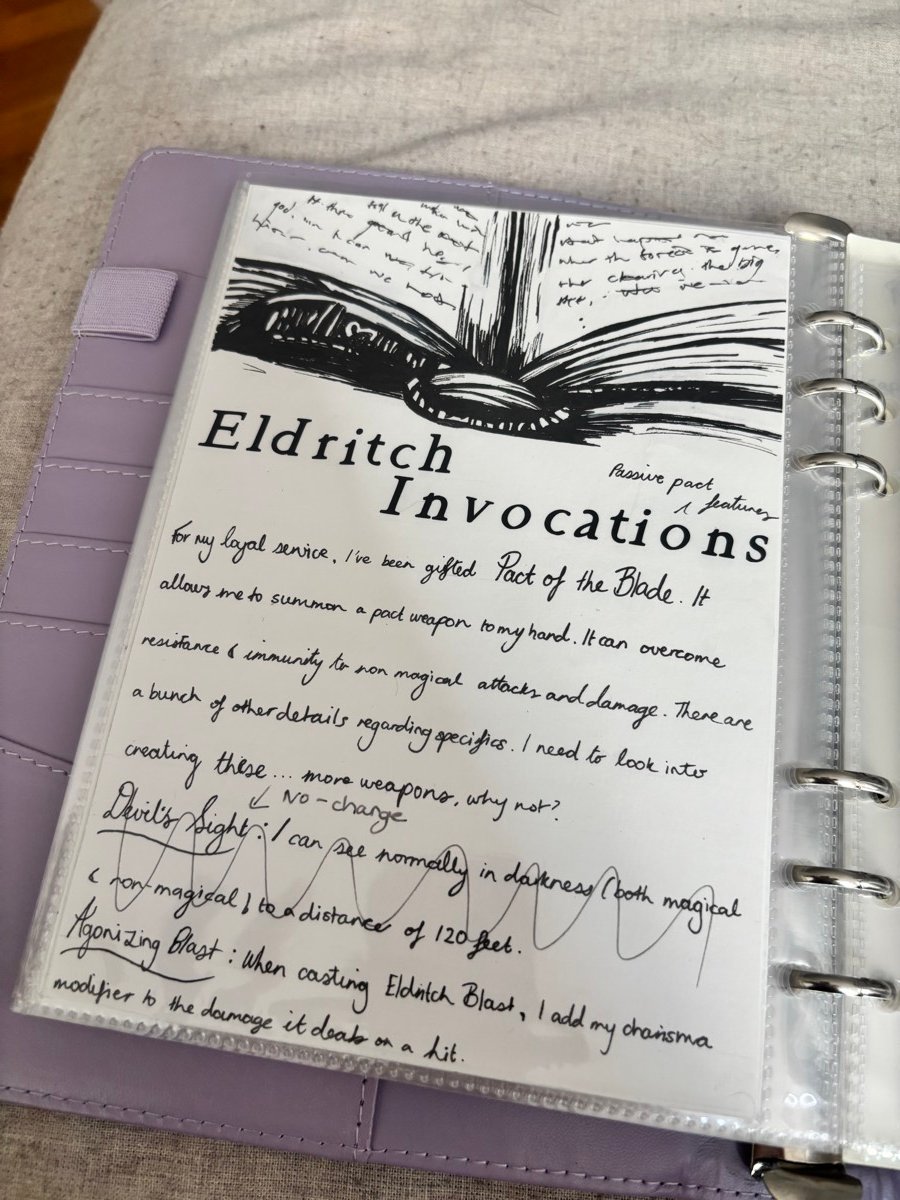 Eldritch
Invocations
Passive pact
features
For my loyal service, I've been gifted Pact of the Blade. It
allows me to summon a pact weapon to my hand. It can overcome
resistance & immunity to non magical attacks and damage. There are
a bunch of other details regarding specifics. I need to look into
creating these... more weapons, why not?
← No-change
Devil's Sight: I can see normally in darkness (both magical
& non-magical) to a distance of 120 feet.
Agonizing Blast: When casting Eldritch Blast, I add my charisma
modifier to the damage it deals on a hit.